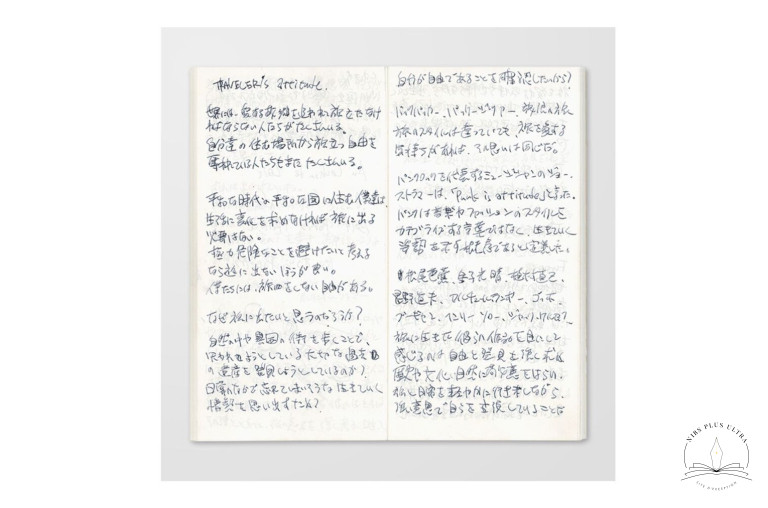 TRAVELER's attitude.
世界には、愛する故郷を追われ、旅立たなけ
ればならない人たちがたくさんいる。
自分達の住む場所から旅立つ自由を
奪われている人たちもまた たくさんいる。
平和な時代の平和な国に住む僕達は、
生活に変化を求めなければ 旅に出る
必要はない。
極力危険なことを避けたいと考える
なら旅に出ないほうが良い。
僕たちには、旅をしない自由がある。
なぜ旅に出たいと思うのだろうか?
自然の中や異国の街を歩くことで、
失われようとしている大切な過去
の遺産を発見しようとしているのか?
日常のなかで忘れてしまいそうな 生きていく
情熱を思い出すため?
自分が自由であることを確認したいから?
バックパッカー、バックパッカー、放浪の旅
旅のスタイルは違っていても、旅を愛する
気持ちがあれば、その思いは同じだ。
パンクロックを代表するミュージシャンのジョー・
ストラマーは、「Punk is attitude」と言った。
パンクは音楽やファッションのスタイルを
カテゴライズする言葉ではなく、生きていく
姿勢を示す態度であると定義した。
松尾芭蕉、金子光晴、植村直己、
星野道夫、ブルース・チャトウィン、ゴッホ、
ヘンリー・ソロー、ジャック・ケルアック、
旅に生きた彼らの作品を目にして
感じるのは自由と発見を強く求め
歴史や文化、自然に敬意をはらい、
旅と日常を軽やかに行き来しながら、
強い意思で自らを表現していることだ
NIBS PLUS ULTRA